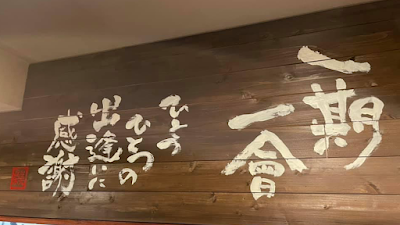 一期
一會
ひとつ
ひとつの
出逢に
感謝